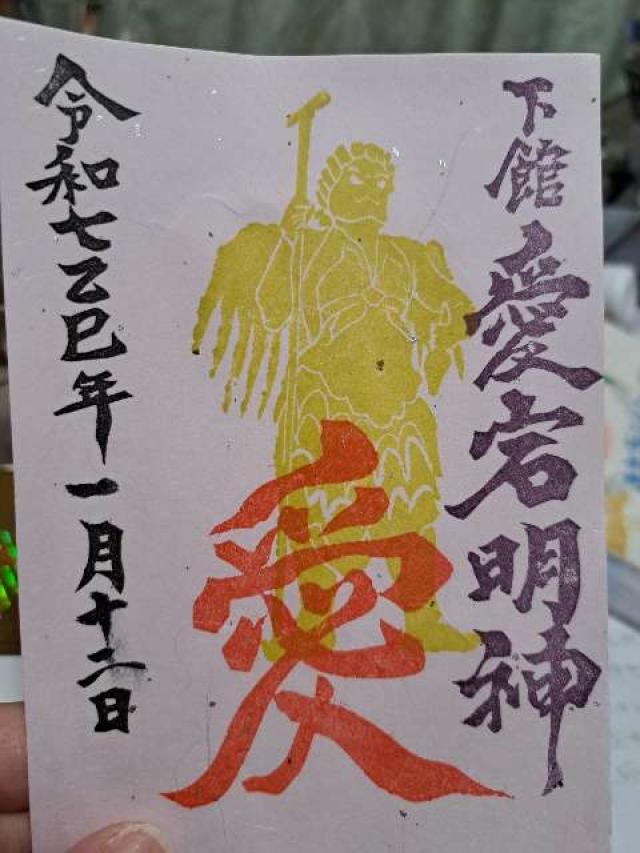 下館愛宕明神
愛
令和七乙巳年一月十二日